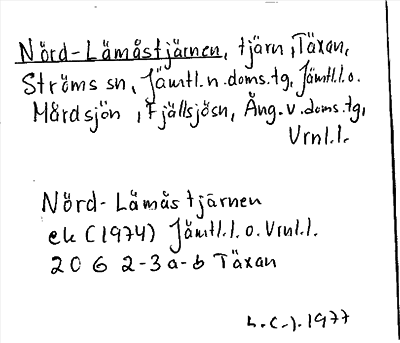 Nörd-Lämåstjärnen, tjärn, Täxan,
Ströms sn, Jämtl.n.doms.tg, Jämtl.l.o.
Mårdsjön, Fjällsjösn, Ång.v.doms.tg,
Vrnl.l.
Nörd-Lämåstjärnen
ek (1974) Jämtl.l.o.Vrnl.l.
20 G 2-3 a-b Täxan
1977